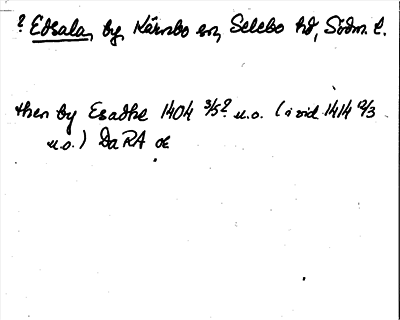 ? Edsala, by, Kärnbo sn, Selebo hd, Södm. l.
then by Esadhe 1404 3/5? u.o. (i vid. 1414 12/3
u.o.) Da RA oe